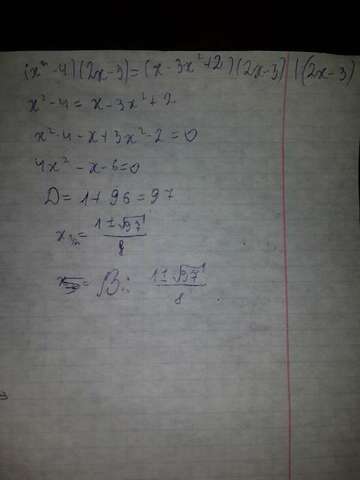 (x² - 4)(2x-3) = (x - 3x² + 2)(2x-3) | (2x-3)
x² - 4 = x - 3x² + 2
x² - 4 - x + 3x² - 2 = 0
4x² - x - 6 = 0
D = 1 + 96 = 97
x₁/₂ = (1 ± √97)/8
B: (1 ± √97)/8